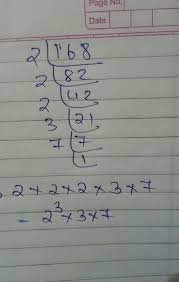 Page No.
Date
2 168
2 82
2 42
3 21
7 7
1
2 × 2 × 2 × 3 × 7
- 2³ × 3 × 7